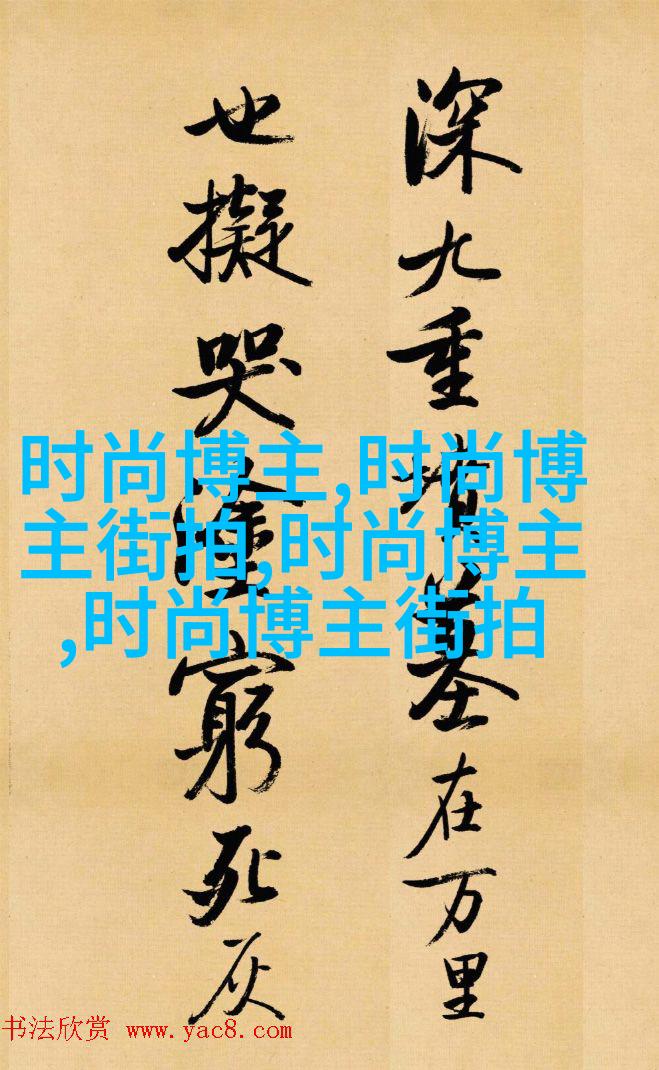 深九重墳墓在万里
也擬哭塗窮死灰
时尚博主,时尚博
主街拍,时尚博主
,时尚博主街拍
书法欣赏 www.yac8.com